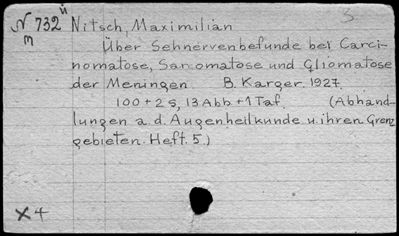 S
ü
N 732 Nitsch, Maximilian
m
Über Sehnervenbefunde bei Carci-
nomatose, Sarcomatose und Gliomatose
der Meningen B. Karger. 1927.
100 + 2 S, 13 Abb + 1 Taf. (Abhand-
lungen a. d. Augenheilkunde u. ihren Grenz
gebieten. Heft. 5.)
X4